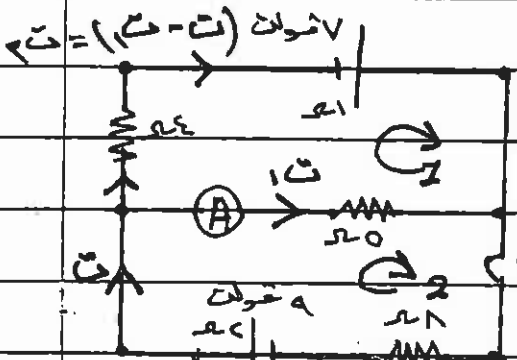 ت٢ = (ت - ت١) ٧ فولت
١Ω
٤Ω
1
A
ت١
٥Ω
ت
2
٩ فولت
٢Ω
٨Ω